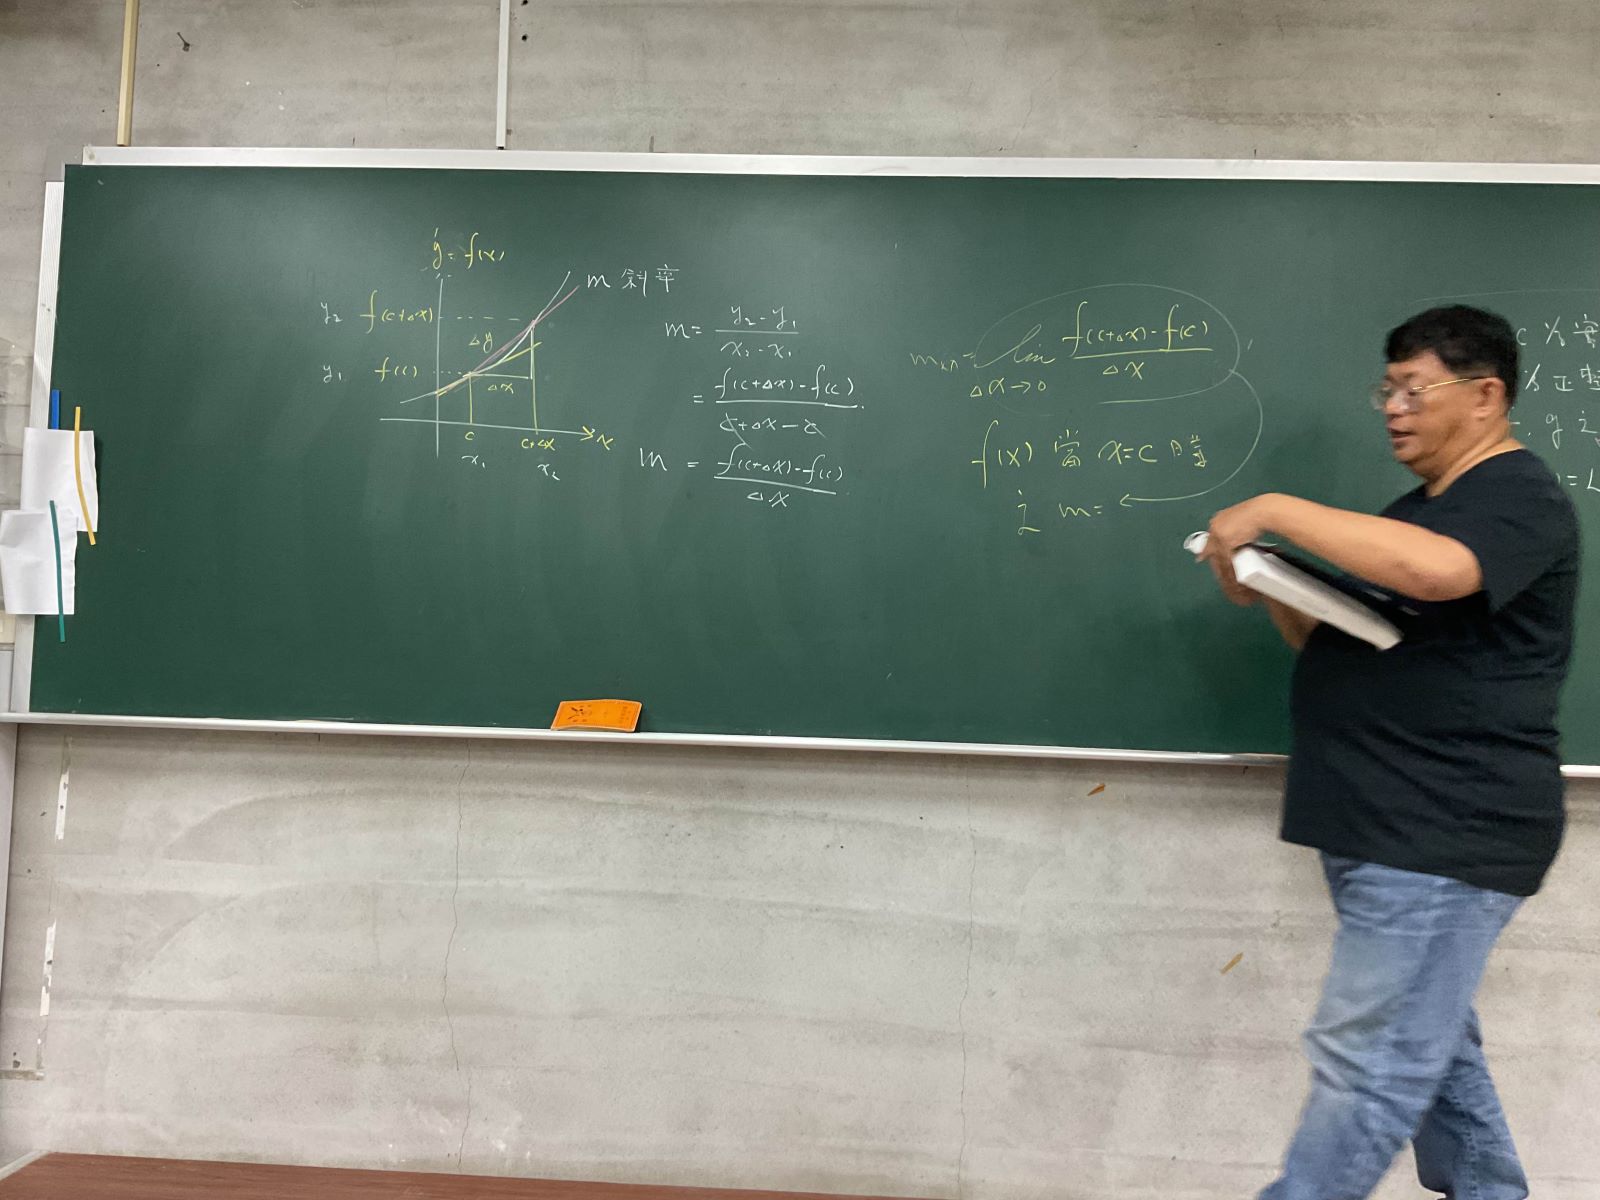 y = f(x)
m 斜率
y₂ f(c+Δx)
Δy
y₁ f(c)
Δx
c c+Δx x
x₁ x₂
m = (y₂ - y₁) / (x₂ - x₁)
= (f(c+Δx) - f(c)) / (c+Δx - c)
m = (f(c+Δx) - f(c)) / Δx
lim Δx→0 (f(c+Δx) - f(c)) / Δx
f(x) 當 x=c 時
之 m=
c 為實
為正整
g
) = L